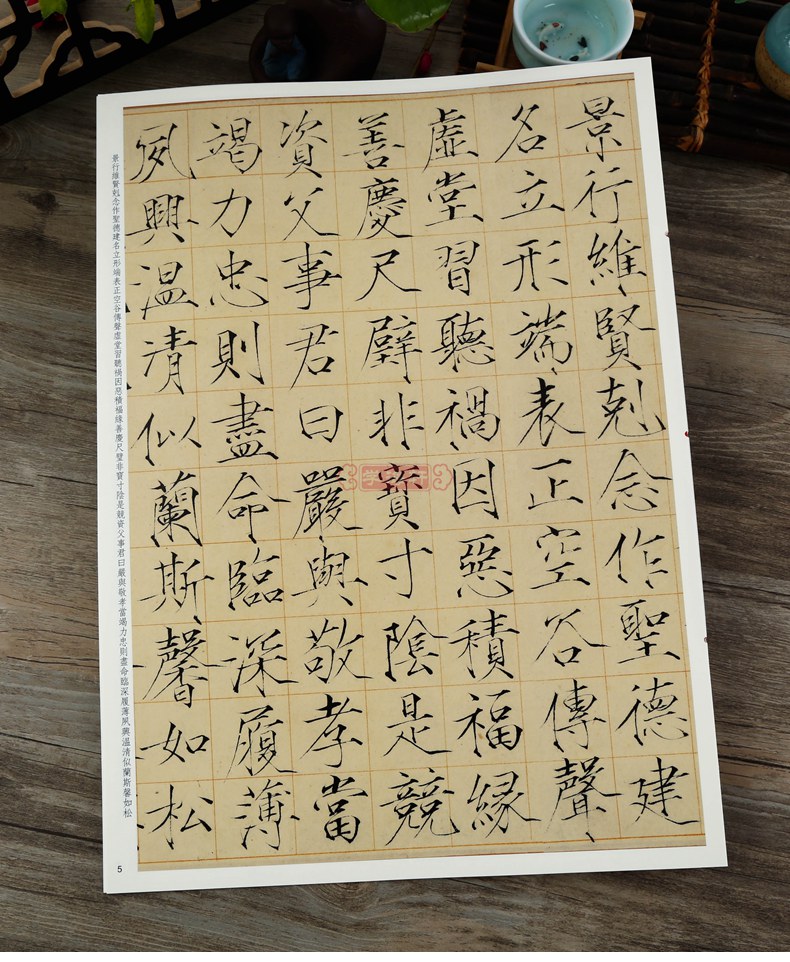 景行維賢剋念作聖德建
名立形端表正空谷傳聲
虛堂習聽禍因惡積福緣
善慶尺璧非寶寸陰是競
資父事君曰嚴與敬孝當
竭力忠則盡命臨深履薄
夙興温凊似蘭斯馨如松
景行維賢剋念作聖德建名立形端表正空谷傳聲虛堂習聽禍因惡積福緣善慶尺璧非寶寸陰是競資父事君曰嚴與敬孝當竭力忠則盡命臨深履薄夙興溫清似蘭斯馨如松
5